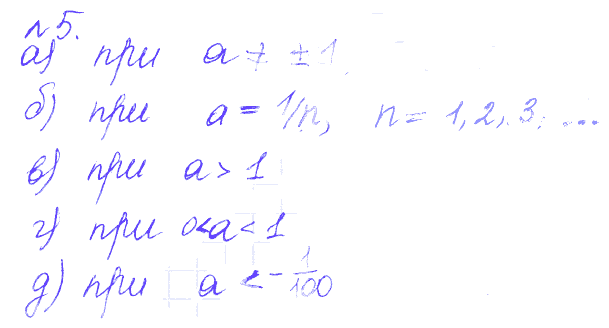 №5.
а) при a ≠ ±1
б) при a = 1/n, n = 1, 2, 3, ...
в) при a > 1
г) при 0<a<1
д) при a < -1/100